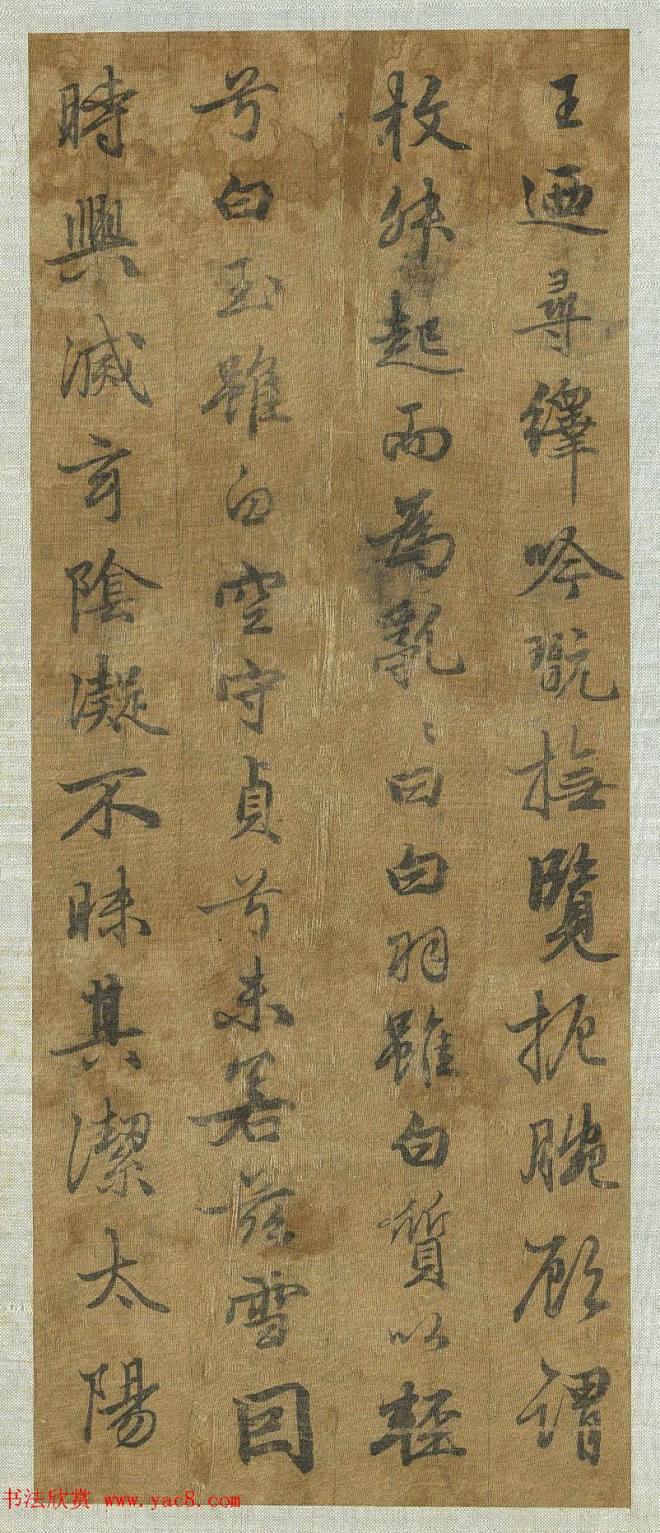 王迺尋繹吟翫撫覽扼腕顧謂
枚外起而為亂〻曰白羽雖白質以輕
兮白玉雖白空守貞兮未若茲雪因
時興滅玄陰凝不昧其潔太陽
书法欣赏 www.yac8.com